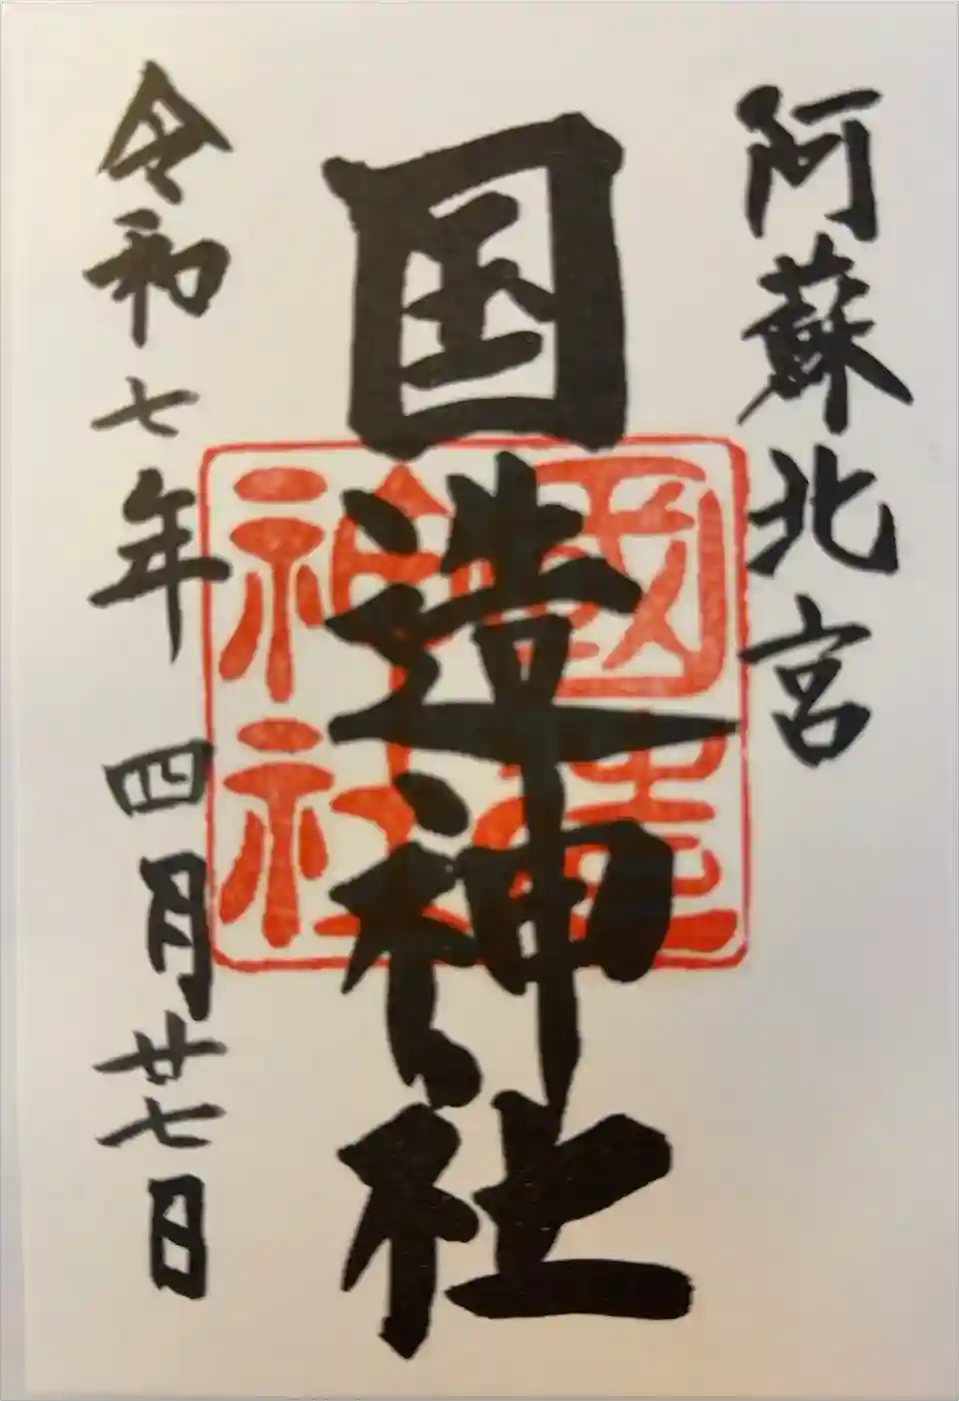 阿蘇北宮
国造神社
國造神社
令和七年四月廿七日